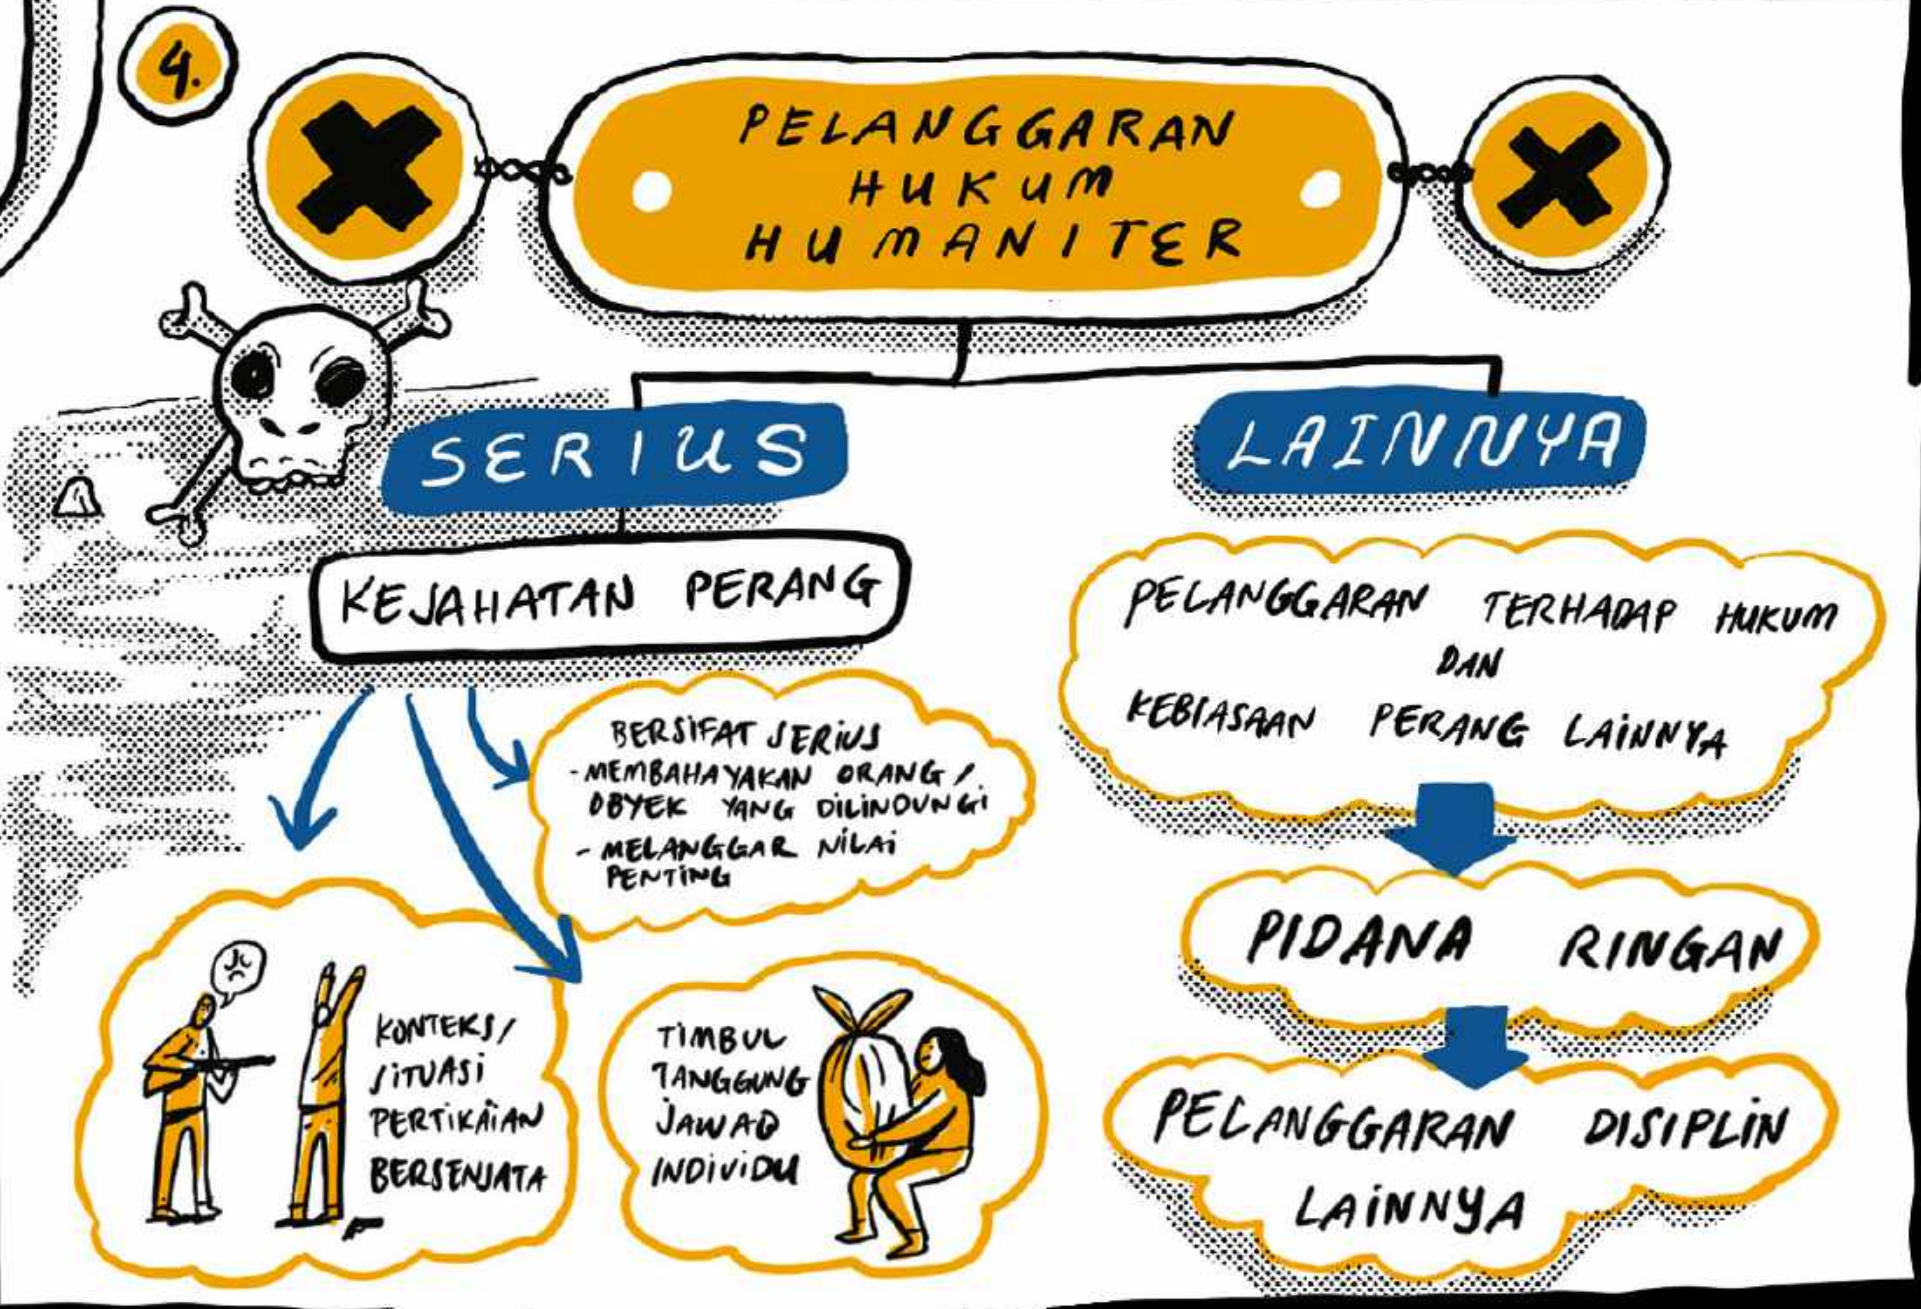 4.
PELANGGARAN
HUKUM
HUMANITER
SERIUS
KEJAHATAN PERANG
BERSIFAT SERIUS
- MEMBAHAYAKAN ORANG /
OBYEK YANG DILINDUNGI
- MELANGGAR NILAI
PENTING
KONTEKS/
SITUASI
PERTIKAIAN
BERSENJATA
TIMBUL
TANGGUNG
JAWAB
INDIVIDU
LAINNYA
PELANGGARAN TERHADAP HUKUM
DAN
KEBIASAAN PERANG LAINNYA
PIDANA RINGAN
PELANGGARAN DISIPLIN
LAINNYA